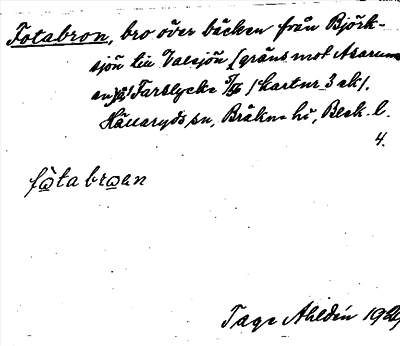 Fotabron, bro över bäcken från Björk-
sjön till Valsjön (gräns mot Asarums
sn) på Farslycke 5/16 (kartnr 3 ak).
Hällaryds sn, Bräkne hd, Blek. l.
4.
fòtabroen
Tage Ahldén 19